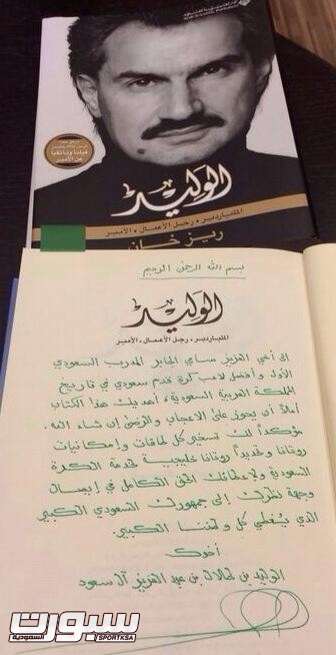 الوليد
الملياردير • رجل الأعمال • الأمير
ريز خان
بسم الله الرحمن الرحيم
الوليد
الملياردير • رجل الأعمال • الأمير
إلى أخي العزيز سامي الجابر المدرب السعودي
الأول وأفضل لاعب كرة قدم سعودي في تاريخ
المملكة العربية السعودية، أهديك هذا الكتاب
آملاً أن يحوز على الاعجاب والرضى إن شاء الله.
مؤكداً لك تسخير كل طاقات وإمكانيات
روتانا وتحديداً روتانا خليجية لخدمة الكرة
السعودية ولإعطائك الحق الكامل في إيصال
وجهة نظرك إلى جمهورك السعودي الكبير
الذي يغطي كل وطننا الكبير.
أخوك
الوليد بن طلال بن عبد العزيز آل سعود
سبورت
السعودية
SPORTKSA